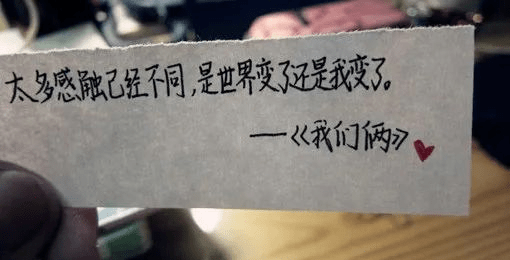 太多感触已经不同,是世界变了还是我变了。
—《我们俩》